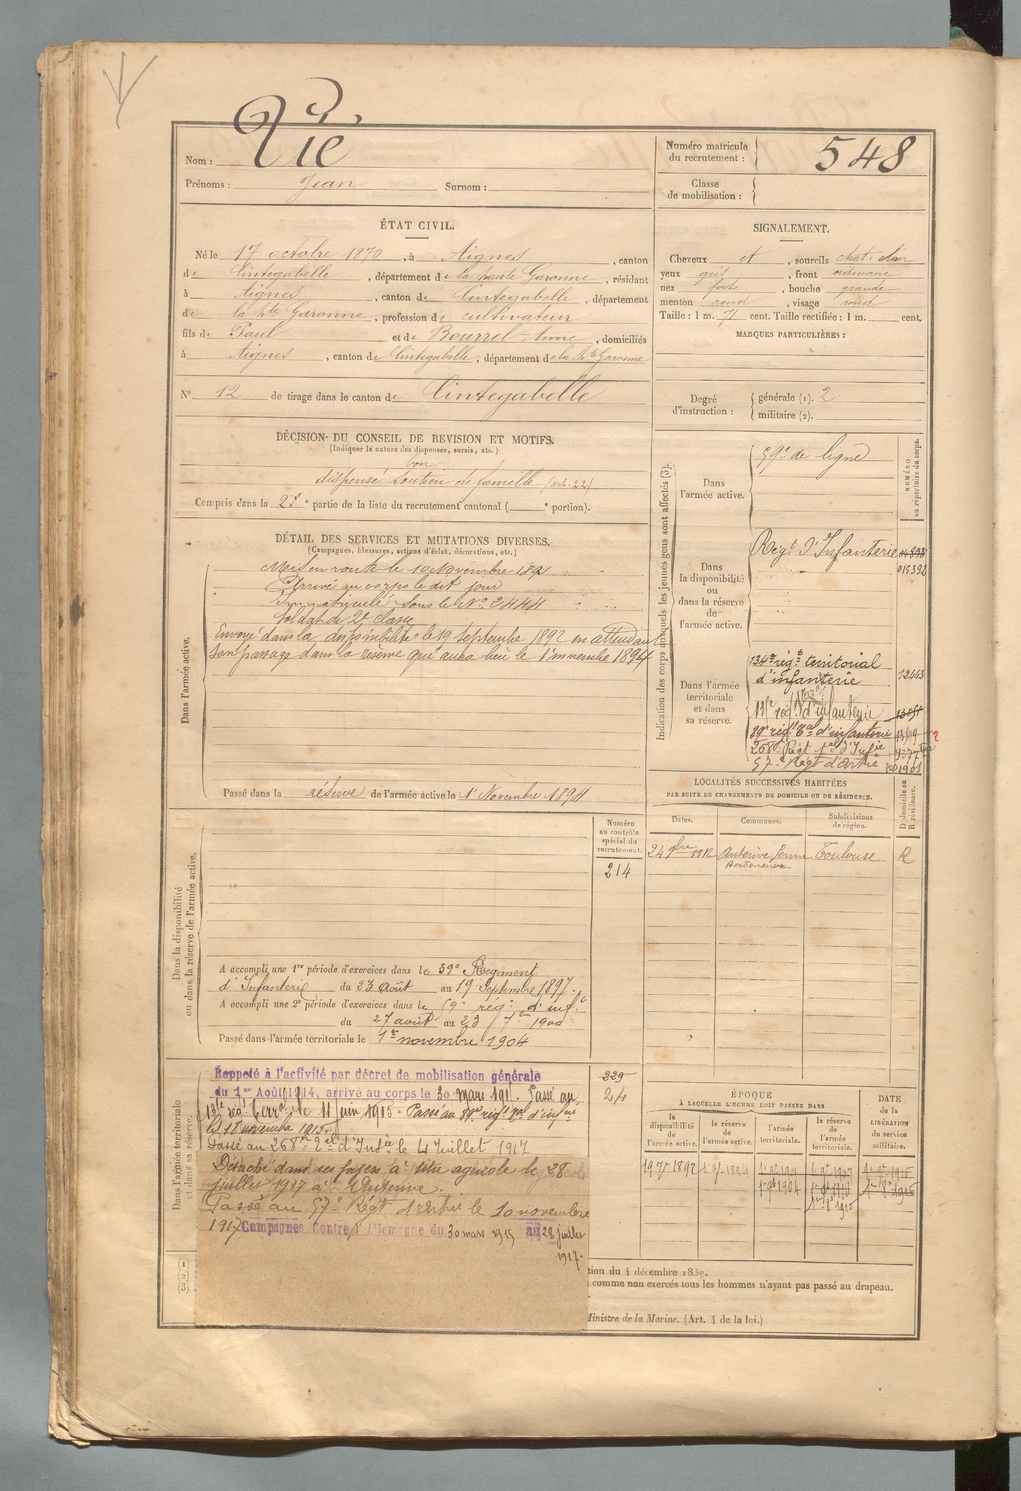 Nom : Vié
Prénoms : Jean Surnom :
Numéro matricule du recrutement : 548
Classe de mobilisation :
ÉTAT CIVIL.
Né le 17 octobre 1870, à Aignes, canton
de Cintegabelle, département de la haute Garonne, résidant
à Aignes, canton de Cintegabelle, département
de la hte Garonne, profession de cultivateur
fils de Paul et de Bourrel Anne, domiciliés
à Aignes, canton de Cintegabelle, département de la hte Garonne
N° 12 de tirage dans le canton de Cintegabelle
SIGNALEMENT.
Cheveux et, sourcils chat. clair
yeux gris, front ordinaire
nez fort, bouche grande
menton rond, visage rond
Taille : 1 m. 71 cent. Taille rectifiée : 1 m. cent.
MARQUES PARTICULIÈRES :
Degré d'instruction : générale (1). 2
militaire (2).
DÉCISION DU CONSEIL DE REVISION ET MOTIFS.
(Indiquer la nature des dispenses, sursis, etc.)
bon
dispensé soutien de famille (art. 22)
Compris dans la 2e partie de la liste du recrutement cantonal ( e portion).
DÉTAIL DES SERVICES ET MUTATIONS DIVERSES.
(Campagnes, blessures, actions d'éclat, décorations, etc.)
Dans l'armée active.
Mis en route le 10 Novembre 1891
Arrivé au corps le dit jour
Immatriculé sous le N° 2444
Soldat de 2e classe
Envoyé dans la disponibilité le 19 Septembre 1892 en attendant
son passage dans la réserve qui aura lieu le 1er novembre 1894
Passé dans la réserve de l'armée active le 1er Novembre 1894
Indication des corps auxquels les jeunes gens sont affectés (3).
NUMÉRO au répertoire du corps.
Dans l'armée active.
59e de ligne
Dans la disponibilité ou dans la réserve de l'armée active.
Régt d'Infanterie
015392
Dans l'armée territoriale et dans sa réserve.
134e régt territorial
d'infanterie 12443
13e régt d'infanterie
89e régt tal d'infanterie
268e Régt tal d'Infie
57e Régt d'Artie 1901
LOCALITÉS SUCCESSIVES HABITÉES
PAR SUITE DE CHANGEMENTS DE DOMICILE OU DE RÉSIDENCE.
Dates. Communes. Subdivisions de région. D domicile ou R résidence.
24 9bre 1912 Auterive Toulouse R
Bordeneuve
Dans la disponibilité ou dans la réserve de l'armée active.
Numéro au contrôle spécial du recrutement.
214
A accompli une 1re période d'exercices dans le 59e Régiment
d'Infanterie du 23 août au 19 Septembre 1897.
A accompli une 2e période d'exercices dans le 59e régt d'inf.
du 27 août au 23 7bre 1900
Passé dans l'armée territoriale le 1er novembre 1904
Dans l'armée territoriale et dans sa réserve.
229
24
Rappelé à l'activité par décret de mobilisation générale
du 1er Août 1914, arrivé au corps le 30 mars 191. Passé au
régt terral le 11 juin 1915. Passé au 89e régt tal d'infie
le 18 novembre 1915.
Passé au 268e tal d'Infie le 4 Juillet 1917
Détaché dans ses foyers à titre agricole le 28
juillet 1917 à Auterive.
Passé au 57e Régt d'Artie le 10 novembre
1917 Campagnes Contre l'Allemagne du 30 mars 1915 au 28 juillet
1917.
ÉPOQUE
À LAQUELLE L'HOMME DOIT PASSER DANS
la disponibilité de l'armée active. la réserve de l'armée active. l'armée territoriale. la réserve de l'armée territoriale.
DATE de LIBÉRATION du service militaire.
19 7bre 1892
tion du 4 décembre 1889.
comme non exercés tous les hommes n'ayant pas passé au drapeau.
Ministre de la Marine. (Art. 4 de la loi.)